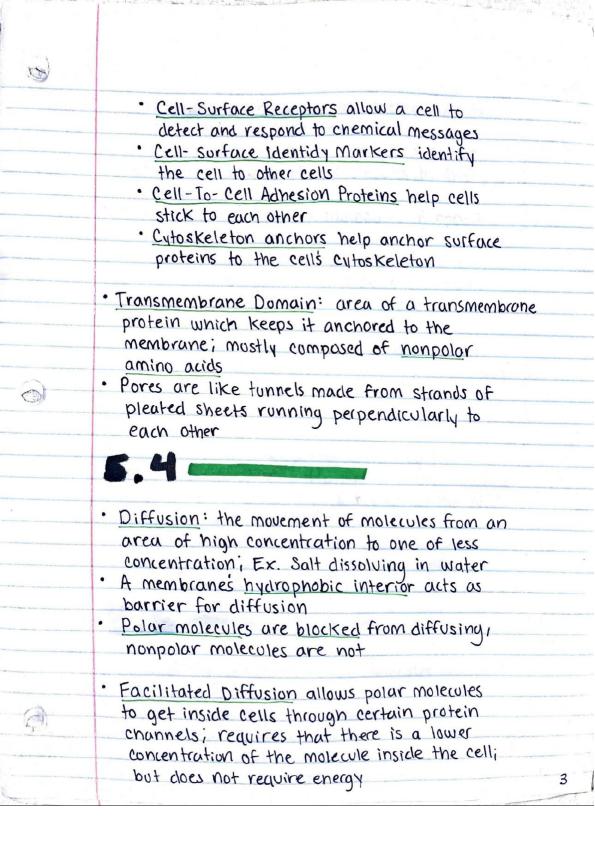 • Cell-Surface Receptors allow a cell to
detect and respond to chemical messages
• Cell-Surface Identidy Markers identify
the cell to other cells
• Cell-To-Cell Adhesion Proteins help cells
stick to each other
• Cytoskeleton anchors help anchor surface
proteins to the cell's cytoskeleton
• Transmembrane Domain: area of a transmembrane
protein which keeps it anchored to the
membrane; mostly composed of nonpolar
amino acids
• Pores are like tunnels made from strands of
pleated sheets running perpendicularly to
each other
5.4
• Diffusion: the movement of molecules from an
area of high concentration to one of less
concentration; Ex. Salt dissolving in water
• A membrane's hydrophobic interior acts as
barrier for diffusion
• Polar molecules are blocked from diffusing,
nonpolar molecules are not
• Facilitated Diffusion allows polar molecules
to get inside cells through certain protein
channels; requires that there is a lower
concentration of the molecule inside the cell;
but does not require energy
3